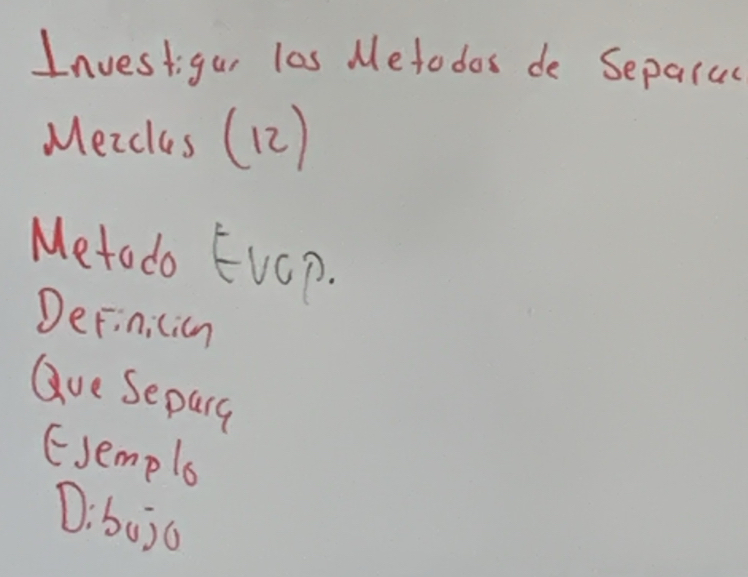 Investigar los Metodos de Separac
Mezclas (12)
Metodo Evap.
Definicion
Que Separa
Ejemplo
Dibujo